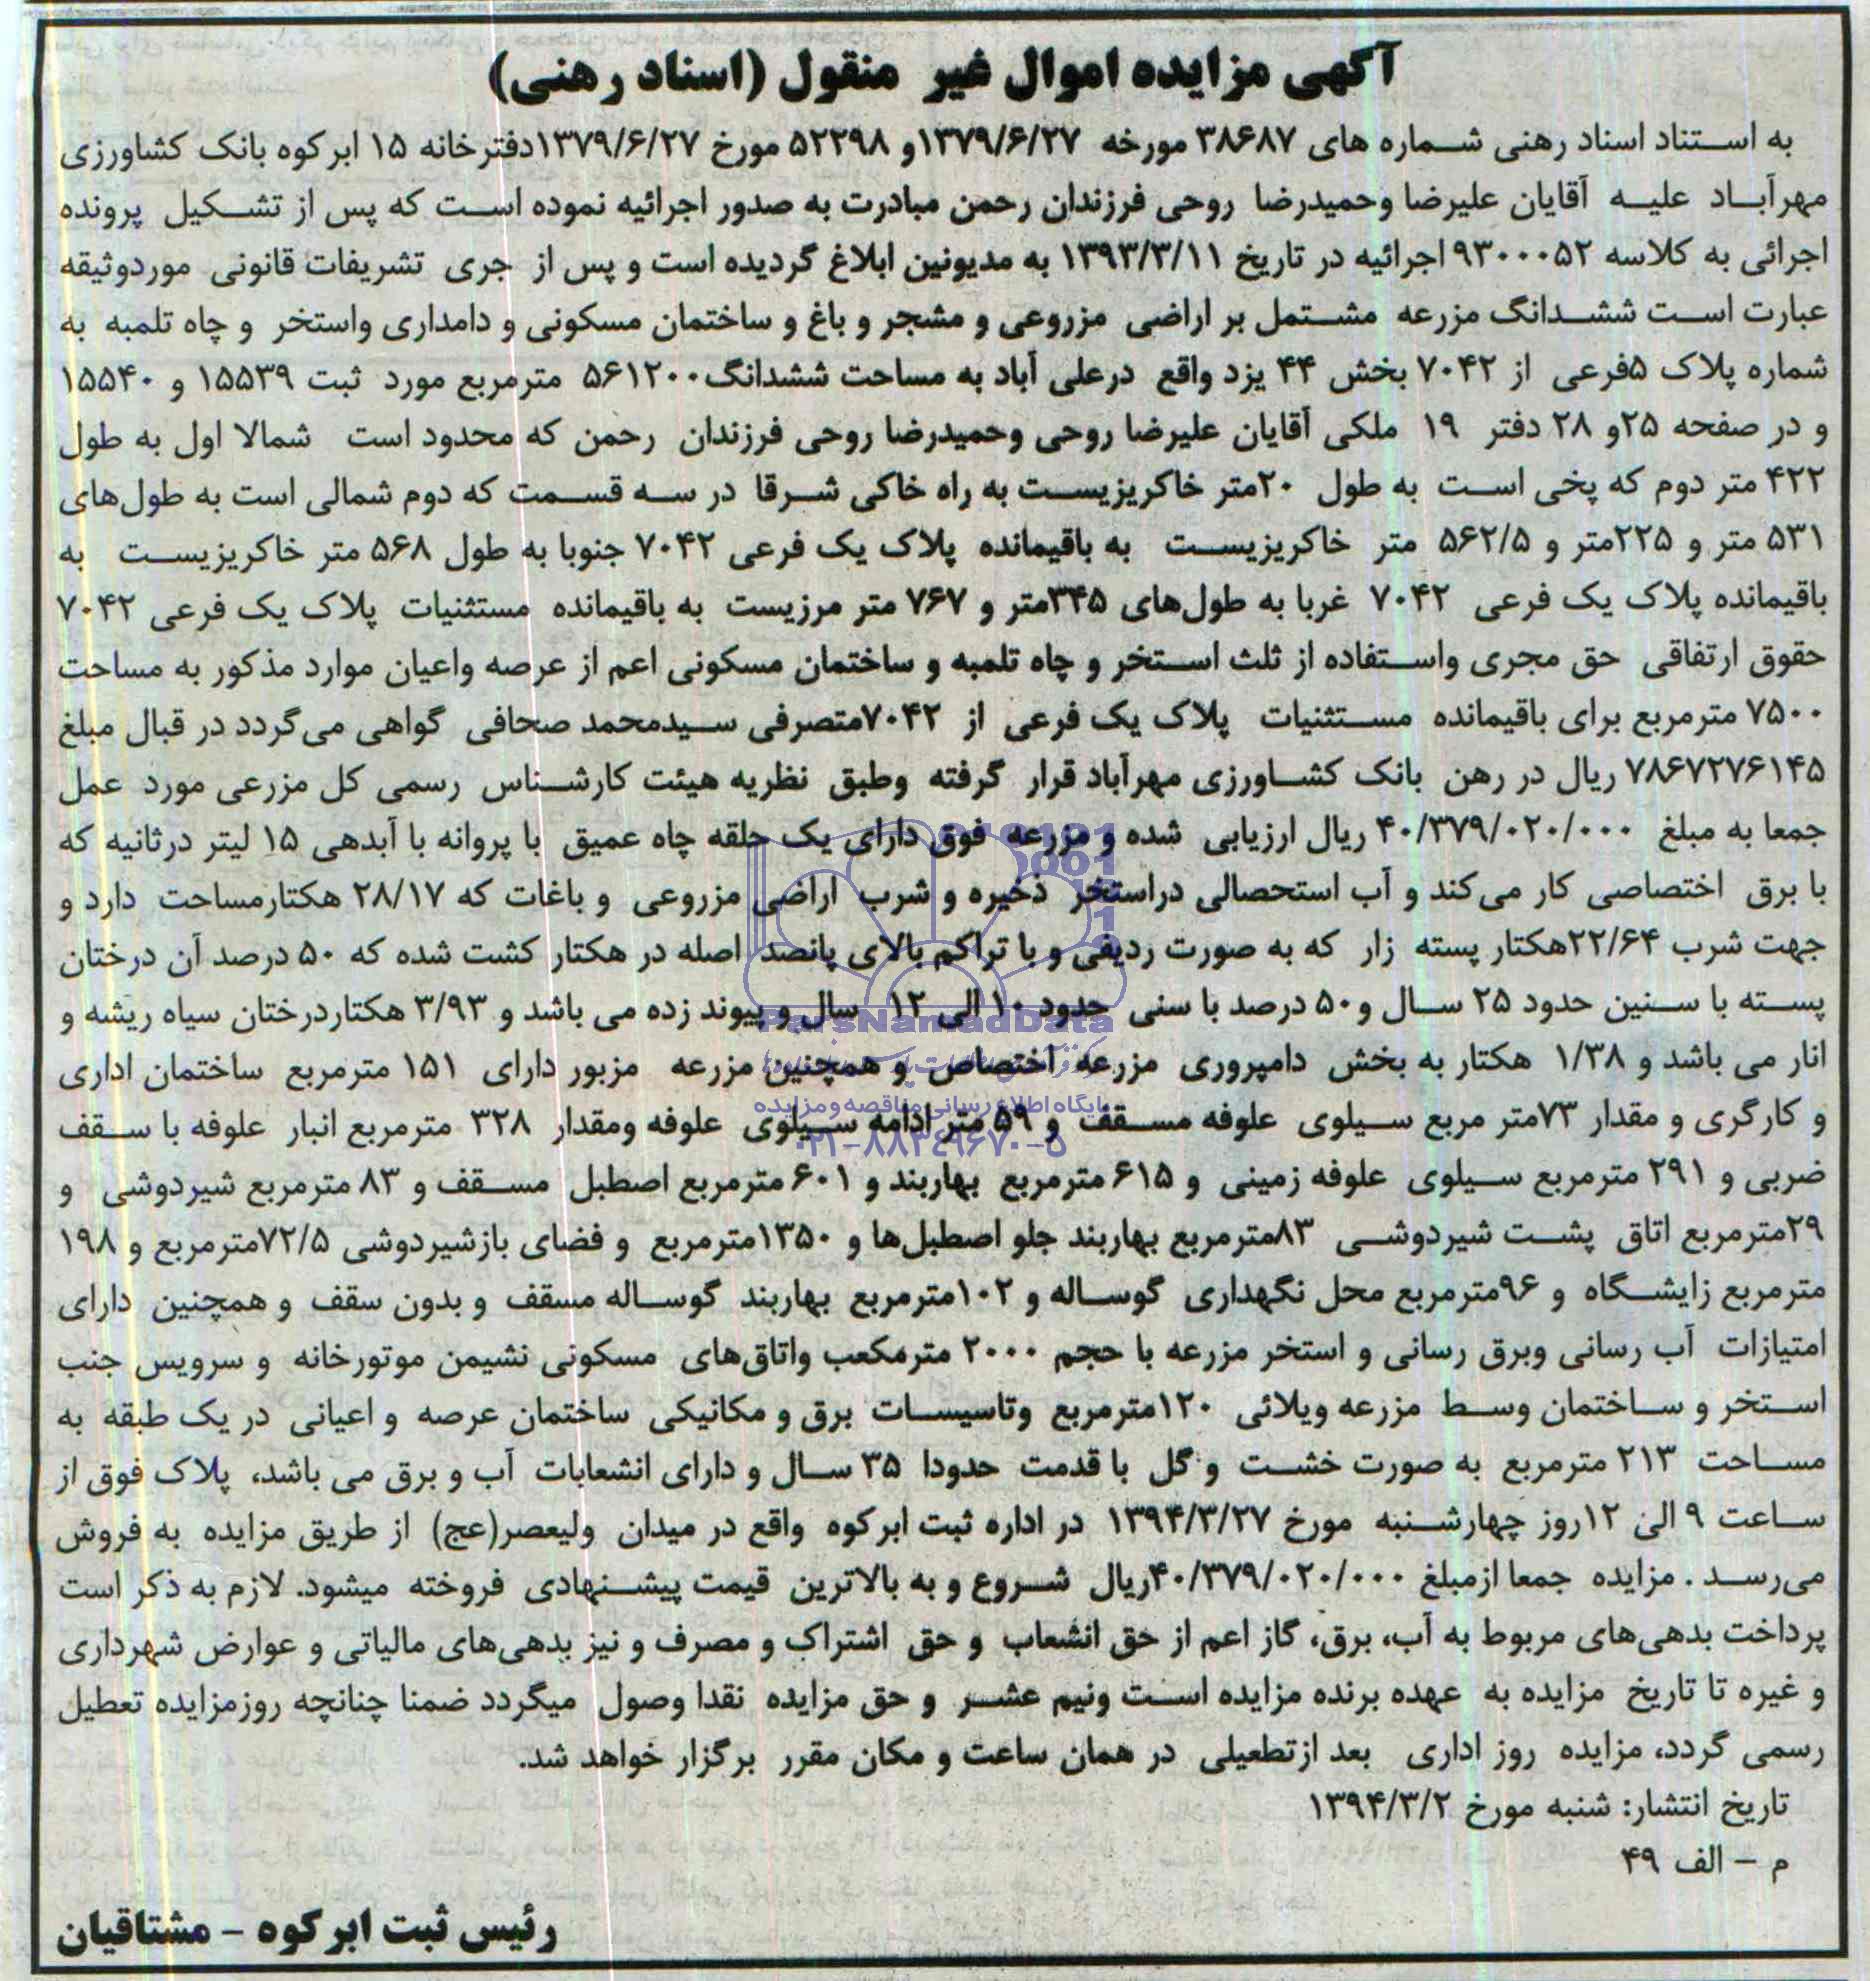 آگهی مزایده اموال غیر منقول (اسناد رهنی)
به استناد اسناد رهنی شماره های ۳۸۶۸۷ مورخه ۱۳۷۹/۶/۲۷و ۵۲۲۹۸ مورخ ۱۳۷۹/۶/۲۷دفترخانه ۱۵ ابرکوه بانک کشاورزی
مهرآباد علیه آقایان علیرضا وحمیدرضا روحی فرزندان رحمن مبادرت به صدور اجرائیه نموده است که پس از تشکیل پرونده
اجرائی به کلاسه ۹۳۰۰۰۵۲ اجرائیه در تاریخ ۱۳۹۳/۳/۱۱ به مدیونین ابلاغ گردیده است و پس از جری تشریفات قانونی موردوثیقه
عبارت است ششدانگ مزرعه مشتمل بر اراضی مزروعی و مشجر و باغ و ساختمان مسکونی و دامداری واستخر و چاه تلمبه به
شماره پلاک ۵فرعی از ۷۰۴۲ بخش ۴۴ یزد واقع درعلی آباد به مساحت ششدانگ۵۶۱۲۰۰ مترمربع مورد ثبت ۱۵۵۳۹ و ۱۵۵۴۰
و در صفحه ۲۵و ۲۸ دفتر ۱۹ ملکی آقایان علیرضا روحی وحمیدرضا روحی فرزندان رحمن که محدود است شمالا اول به طول
۴۲۲ متر دوم که پخی است به طول ۲۰متر خاکریزیست به راه خاکی شرقا در سه قسمت که دوم شمالی است به طول‌های
۵۳۱ متر و ۲۲۵متر و ۵۶۲/۵ متر خاکریزیست به باقیمانده پلاک یک فرعی ۷۰۴۲ جنوبا به طول ۵۶۸ متر خاکریزیست به
باقیمانده پلاک یک فرعی ۷۰۴۲ غربا به طول‌های ۳۴۵متر و ۷۶۷ متر مرزیست به باقیمانده مستثنیات پلاک یک فرعی ۷۰۴۲
حقوق ارتفاقی حق مجری واستفاده از ثلث استخر و چاه تلمبه و ساختمان مسکونی اعم از عرصه واعیان موارد مذکور به مساحت
۷۵۰۰ مترمربع برای باقیمانده مستثنیات پلاک یک فرعی از ۷۰۴۲متصرفی سیدمحمد صحافی گواهی می‌گردد در قبال مبلغ
۷۸۶۷۲۷۶۱۴۵ ریال در رهن بانک کشاورزی مهرآباد قرار گرفته وطبق نظریه هیئت کارشناس رسمی کل مزرعی مورد عمل
جمعا به مبلغ ۴۰/۳۷۹/۰۲۰/۰۰۰ ریال ارزیابی شده و مزرعه فوق دارای یک حلقه چاه عمیق با پروانه با آبدهی ۱۵ لیتر درثانیه که
با برق اختصاصی کار می‌کند و آب استحصالی دراستخر ذخیره و شرب اراضی مزروعی و باغات که ۲۸/۱۷ هکتارمساحت دارد و
جهت شرب ۲۲/۶۴هکتار پسته زار که به صورت ردیفی و با تراکم بالای پانصد اصله در هکتار کشت شده که ۵۰ درصد آن درختان
پسته با سنین حدود ۲۵ سال و ۵۰ درصد با سنی حدود ۱۰ الی ۱۲ سال و پیوند زده می باشد و ۳/۹۳ هکتاردرختان سیاه ریشه و
انار می باشد و ۱/۳۸ هکتار به بخش دامپروری مزرعه اختصاص و همچنین مزرعه مزبور دارای ۱۵۱ مترمربع ساختمان اداری
و کارگری و مقدار ۷۳متر مربع سیلوی علوفه مسقف و ۵۹ متر ادامه سیلوی علوفه ومقدار ۳۲۸ مترمربع انبار علوفه با سقف
ضربی و ۲۹۱ مترمربع سیلوی علوفه زمینی و ۶۱۵ مترمربع بهاربند و ۶۰۱ مترمربع اصطبل مسقف و ۸۳ مترمربع شیردوشی و
۲۹مترمربع اتاق پشت شیردوشی ۸۳مترمربع بهاربند جلو اصطبل‌ها و ۱۳۵۰مترمربع و فضای بازشیردوشی ۷۲/۵مترمربع و ۱۹۸
مترمربع زایشگاه و ۹۶مترمربع محل نگهداری گوساله و ۱۰۲مترمربع بهاربند گوساله مسقف و بدون سقف و همچنین دارای
امتیازات آب رسانی وبرق رسانی و استخر مزرعه با حجم ۲۰۰۰ مترمکعب واتاق‌های مسکونی نشیمن موتورخانه و سرویس جنب
استخر و ساختمان وسط مزرعه ویلائی ۱۲۰مترمربع وتاسیسات برق و مکانیکی ساختمان عرصه و اعیانی در یک طبقه به
مساحت ۲۱۳ مترمربع به صورت خشت و گل با قدمت حدودا ۳۵ سال و دارای انشعابات آب و برق می باشد، پلاک فوق از
ساعت ۹ الی ۱۲روز چهارشنبه مورخ ۱۳۹۴/۳/۲۷ در اداره ثبت ابرکوه واقع در میدان ولیعصر(عج) از طریق مزایده به فروش
می‌رسد . مزایده جمعا ازمبلغ ۴۰/۳۷۹/۰۲۰/۰۰۰ریال شروع و به بالاترین قیمت پیشنهادی فروخته میشود. لازم به ذکر است
پرداخت بدهی‌های مربوط به آب، برق، گاز اعم از حق انشعاب و حق اشتراک و مصرف و نیز بدهی‌های مالیاتی و عوارض شهرداری
و غیره تا تاریخ مزایده به عهده برنده مزایده است ونیم عشر و حق مزایده نقدا وصول میگردد ضمنا چنانچه روزمزایده تعطیل
رسمی گردد، مزایده روز اداری بعد ازتطعیلی در همان ساعت و مکان مقرر برگزار خواهد شد.
تاریخ انتشار: شنبه مورخ ۱۳۹۴/۳/۲
م - الف ۴۹
رئیس ثبت ابرکوه - مشتاقیان
ParsNamadData
پایگاه اطلاع رسانی مناقصه و مزایده
۰۲۱-۸۸۳۴۹۶۷۰-۵